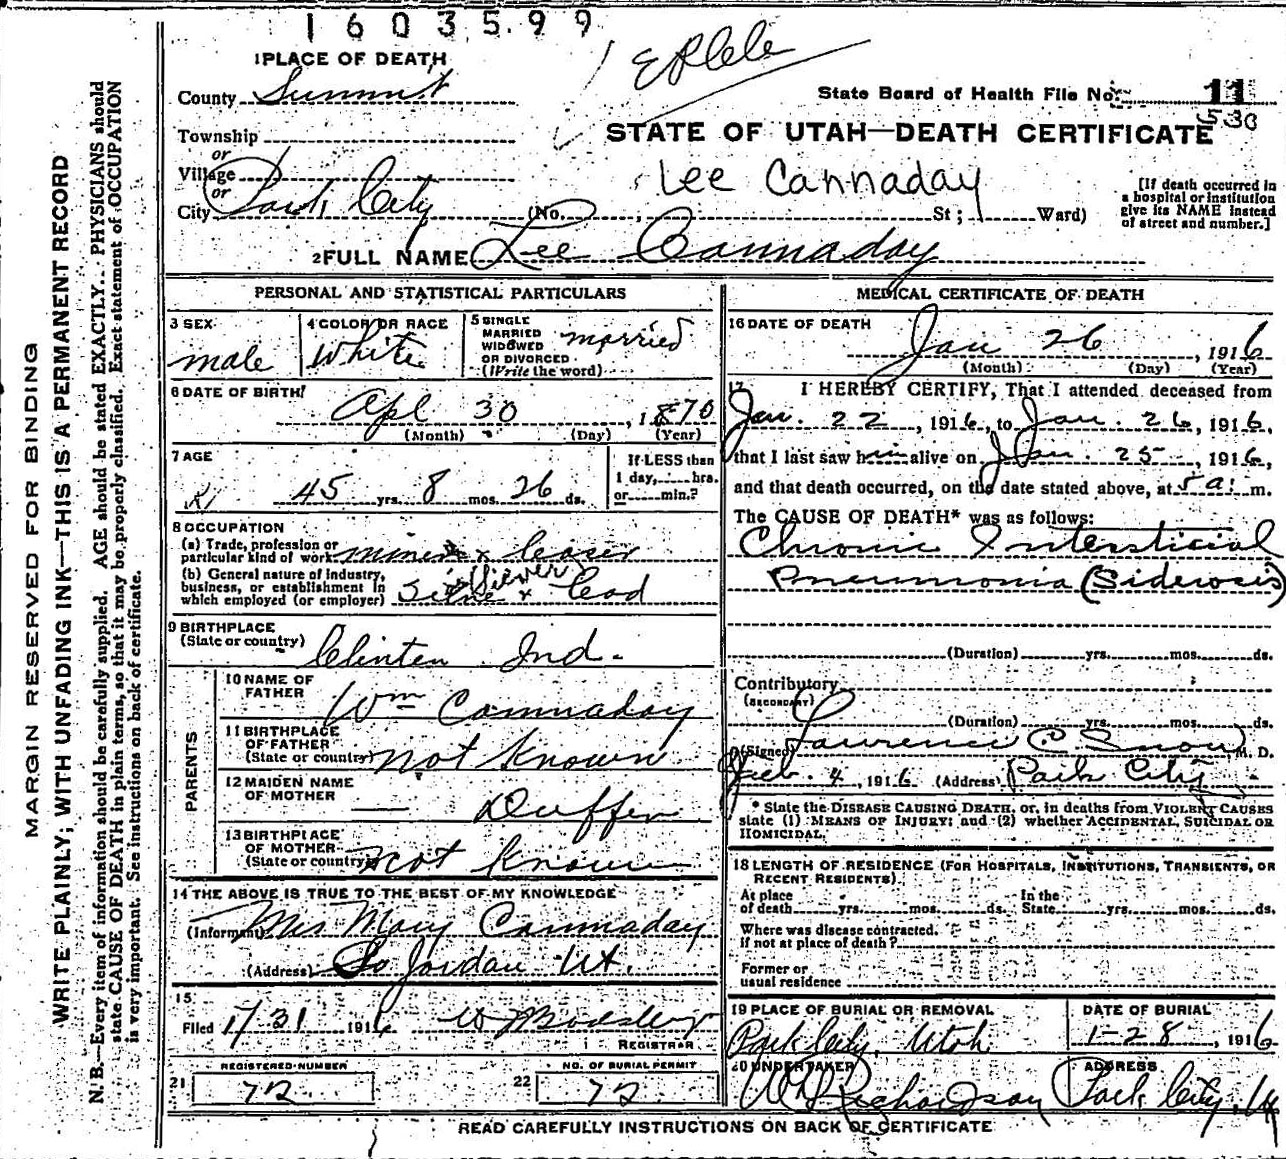 1603599
1 PLACE OF DEATH
County Summit
State Board of Health File No. 11
530
Township
or
Village
or
City Park City (No. ; St; Ward)
STATE OF UTAH—DEATH CERTIFICATE
Lee Cannaday
[If death occurred in
a hospital or institution
give its NAME instead
of street and number.]
2 FULL NAME Lee Cannaday
PERSONAL AND STATISTICAL PARTICULARS
3 SEX
male
4 COLOR OR RACE
White
5 SINGLE
MARRIED
WIDOWED
OR DIVORCED
(Write the word)
married
6 DATE OF BIRTH
Apl 30, 1870
(Month) (Day) (Year)
7 AGE
45 yrs. 8 mos. 26 ds.
If LESS than
1 day, hrs.
or min.?
8 OCCUPATION
(a) Trade, profession or
particular kind of work miner & leaser
(b) General nature of industry,
business, or establishment in
which employed (or employer) Silver & lead
9 BIRTHPLACE
(State or country) Clinten Ind.
PARENTS
10 NAME OF
FATHER
Wm Cannaday
11 BIRTHPLACE
OF FATHER
(State or country) not known
12 MAIDEN NAME
OF MOTHER
— Duffer
13 BIRTHPLACE
OF MOTHER
(State or country) not known
14 THE ABOVE IS TRUE TO THE BEST OF MY KNOWLEDGE
(Informant) Mrs Mary Cannaday
(Address) So Jordan Ut.
15
Filed 1/31 1916
REGISTRAR
21 REGISTERED NUMBER
72
22 NO. OF BURIAL PERMIT
72
MEDICAL CERTIFICATE OF DEATH
16 DATE OF DEATH
Jan 26, 1916
(Month) (Day) (Year)
17 I HEREBY CERTIFY, That I attended deceased from
Jan. 22, 1916, to Jan. 26, 1916,
that I last saw him alive on Jan. 25, 1916,
and that death occurred, on the date stated above, at 5 a. m.
The CAUSE OF DEATH* was as follows:
Chronic Intersticial
Pneumonia (Siderosis)
(Duration) yrs. mos. ds.
Contributory
(SECONDARY)
(Duration) yrs. mos. ds.
(Signed) Lawrence C Snow M. D.
Feb. 4, 1916 (Address) Park City
* State the DISEASE CAUSING DEATH, or, in deaths from VIOLENT CAUSES
state (1) MEANS OF INJURY; and (2) whether ACCIDENTAL, SUICIDAL OR
HOMICIDAL.
18 LENGTH OF RESIDENCE (FOR HOSPITALS, INSTITUTIONS, TRANSIENTS, OR
RECENT RESIDENTS)
At place
of death yrs. mos. ds.
In the
State yrs. mos. ds.
Where was disease contracted.
if not at place of death?
Former or
usual residence
19 PLACE OF BURIAL OR REMOVAL
Park City, Utah
DATE OF BURIAL
1-28, 1916
20 UNDERTAKER
Wm Richardson
ADDRESS
Park City, Ut
READ CAREFULLY INSTRUCTIONS ON BACK OF CERTIFICATE
MARGIN RESERVED FOR BINDING
WRITE PLAINLY; WITH UNFADING INK—THIS IS A PERMANENT RECORD
N. B.—Every item of information should be carefully supplied. AGE should be stated EXACTLY. PHYSICIANS should
state CAUSE OF DEATH in plain terms, so that it may be properly classified. Exact statement of OCCUPATION
is very important. See instructions on back of certificate.